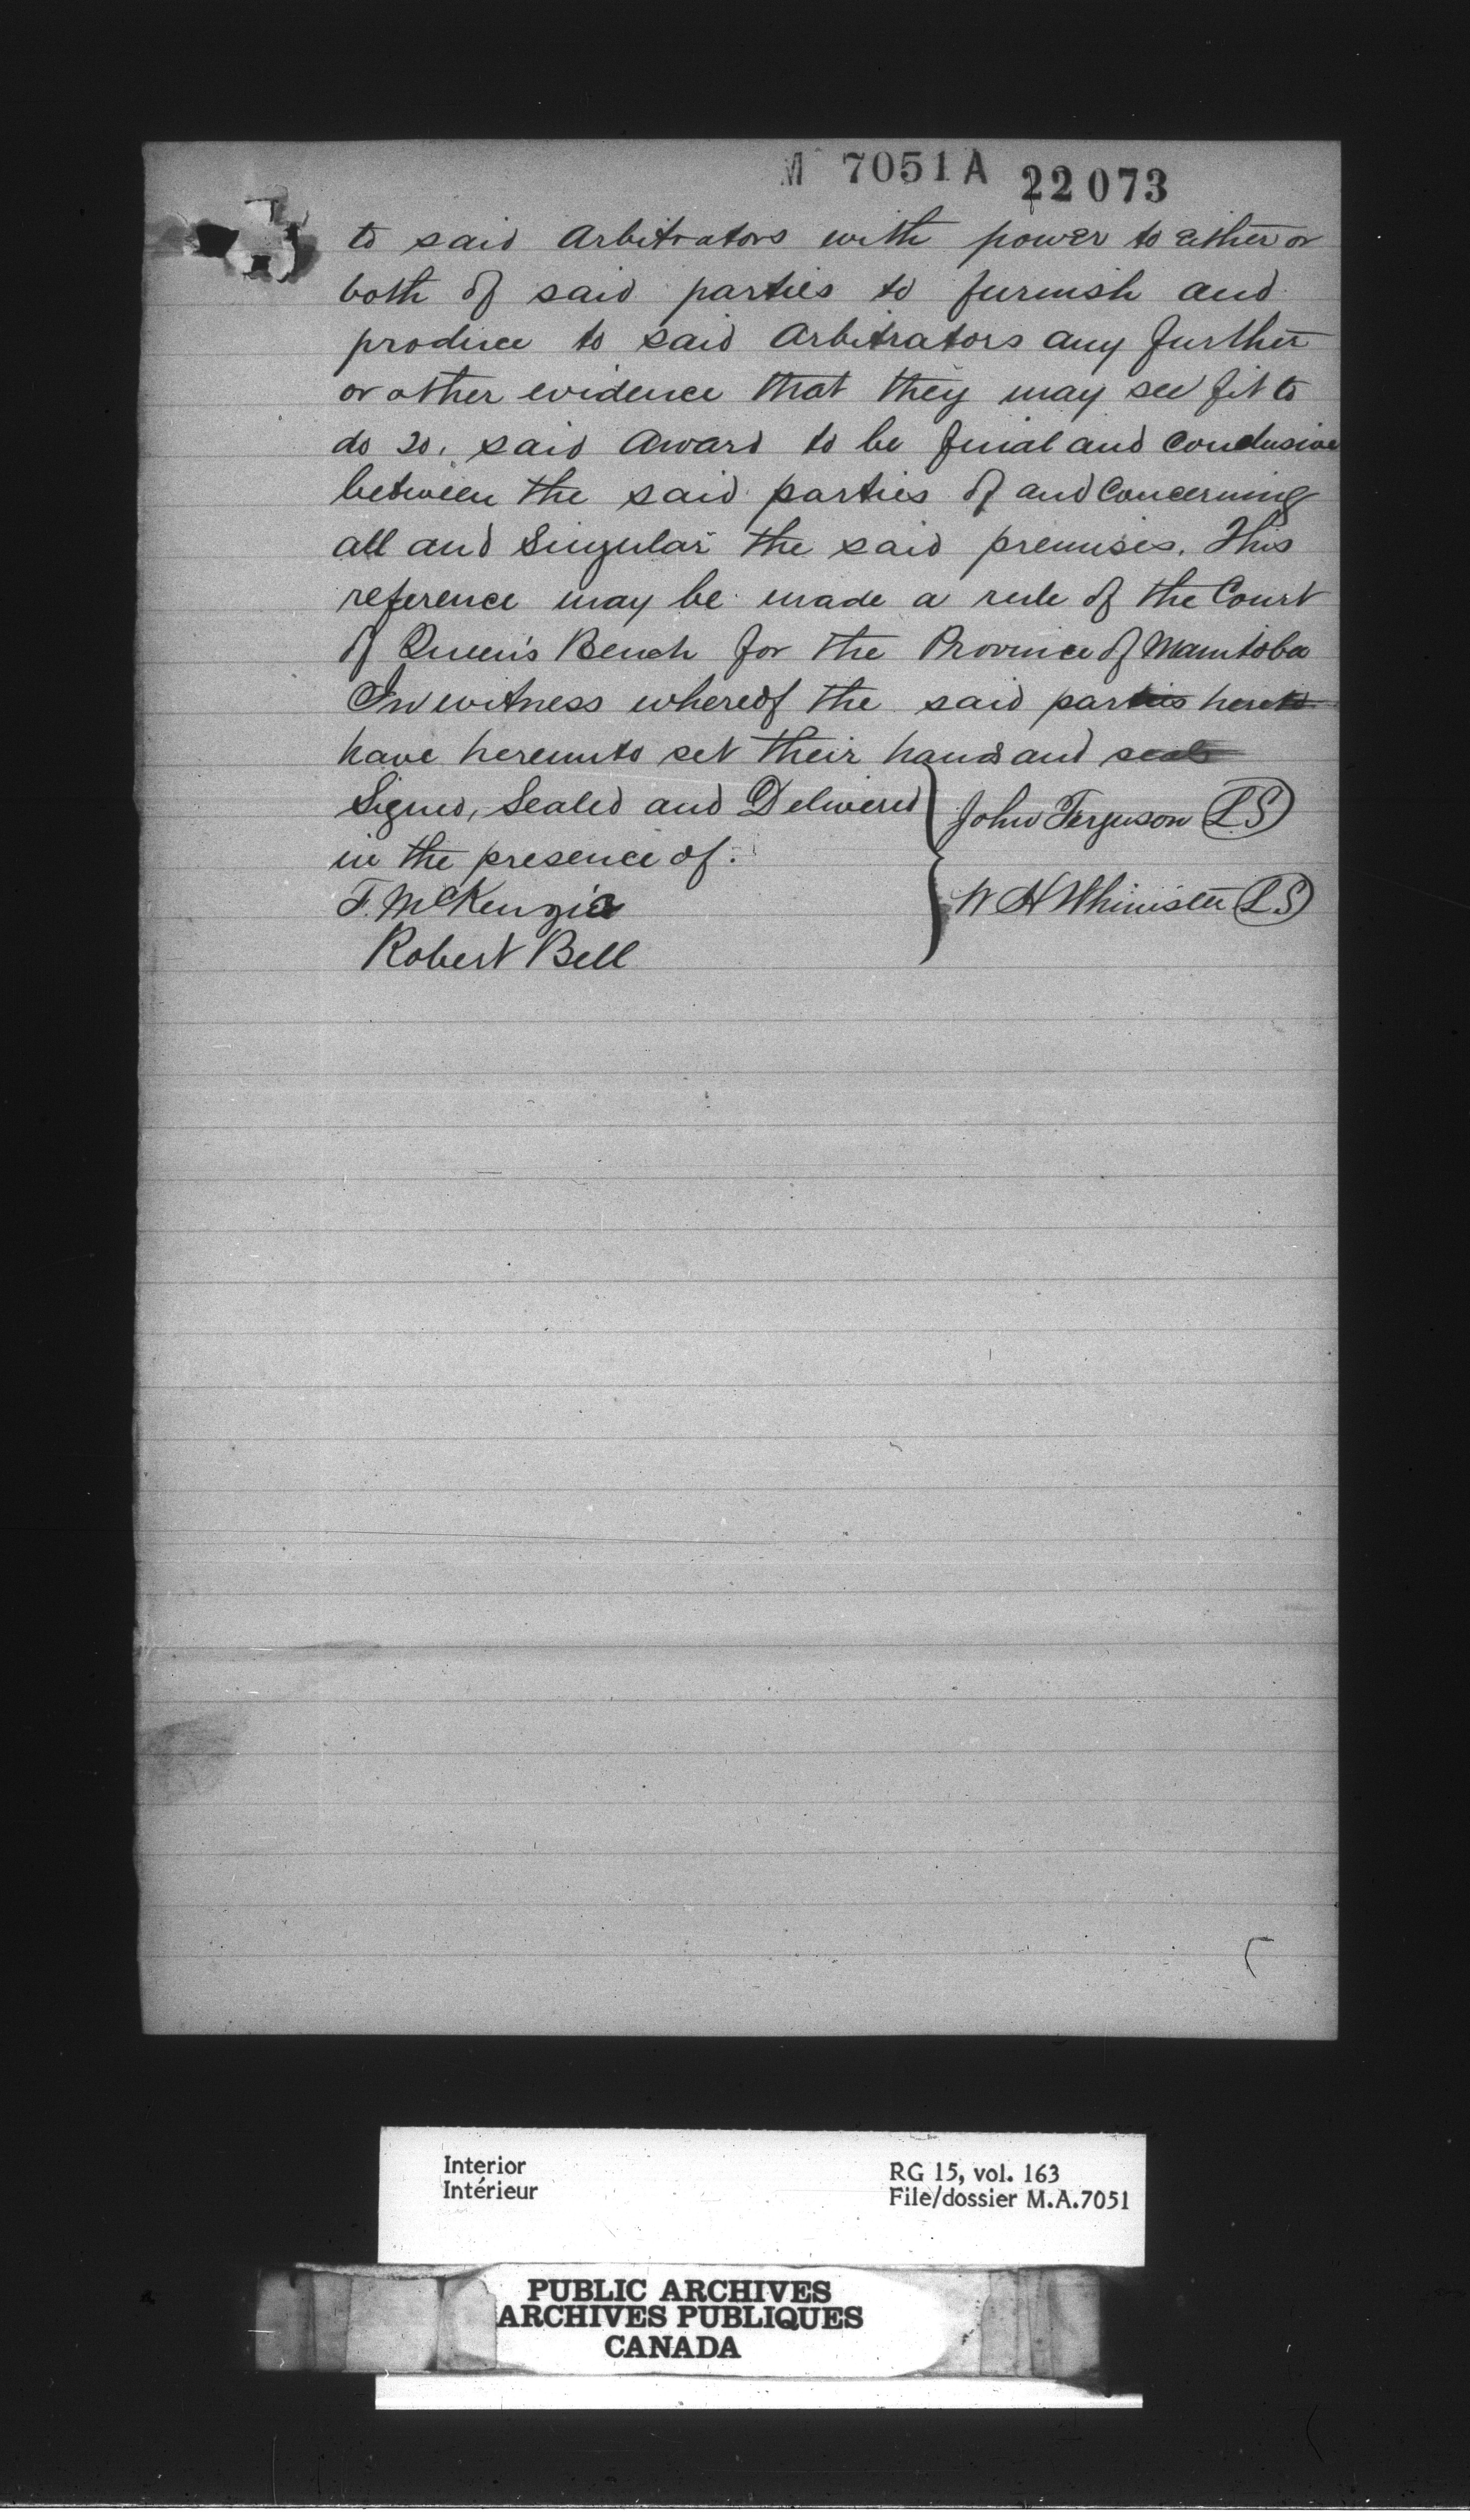 M 7051 A 22073
to said Arbitrators with power to either or
both of said parties to furnish and
produce to said Arbitrators any further
or other evidence that they may see fit to
do so. said Award to be final and Conclusive
between the said parties of and Concerning
all and Singular the said premises. This
reference may be made a rule of the Court
of Queen's Bench for the Province of Manitoba
In witness whereof the said parties hereto
have hereunto set their hands and seals
Signed, Sealed and Delivered
in the presence of.
T. McKenzie
Robert Bell
John Ferguson LS
W H Whimster LS
Interior
Intérieur
RG 15, vol. 163
File/dossier M.A.7051
PUBLIC ARCHIVES
ARCHIVES PUBLIQUES
CANADA